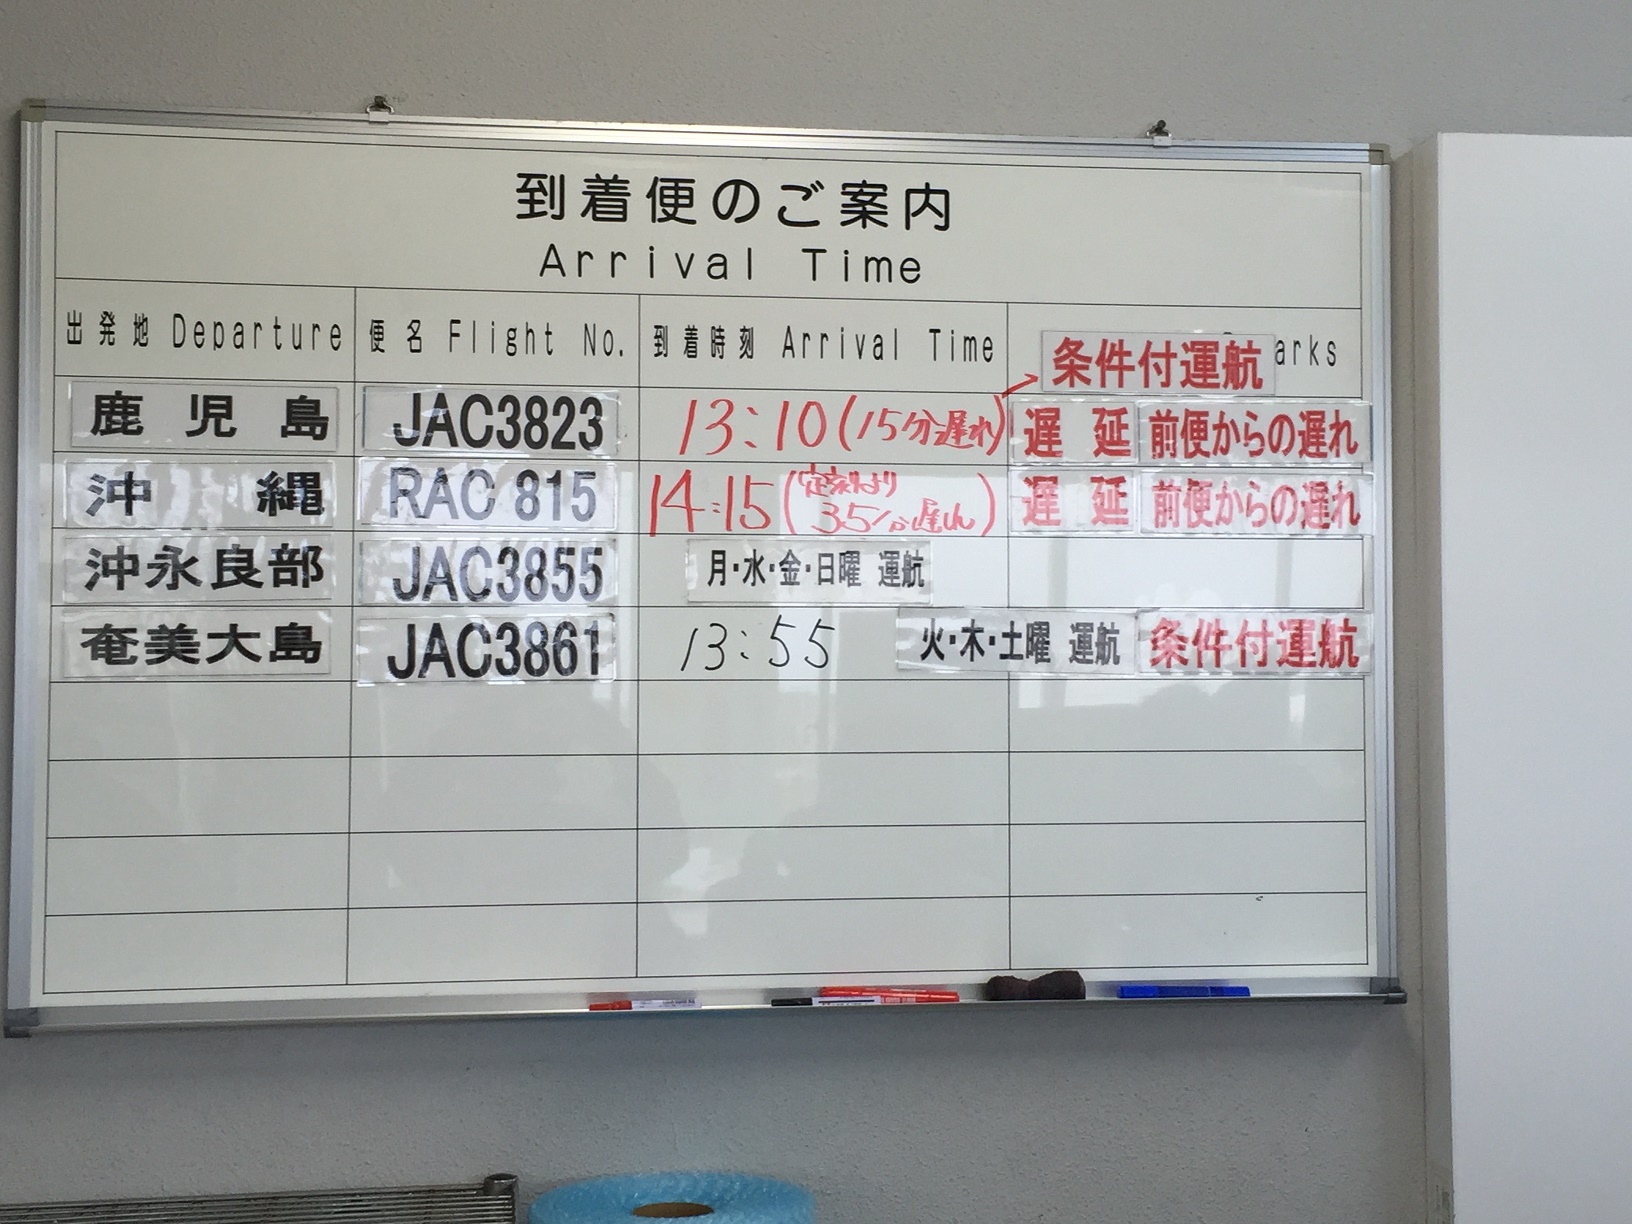 到着便のご案内
Arrival Time
出発地 Departure 便名 Flight No. 到着時刻 Arrival Time 条件付運航 arks
鹿児島 JAC3823 13:10(15分遅れ) 遅延 前便からの遅れ
沖縄 RAC 815 14:15(定刻より35分遅れ) 遅延 前便からの遅れ
沖永良部 JAC3855 月・水・金・日曜 運航
奄美大島 JAC3861 13:55 火・木・土曜 運航 条件付運航